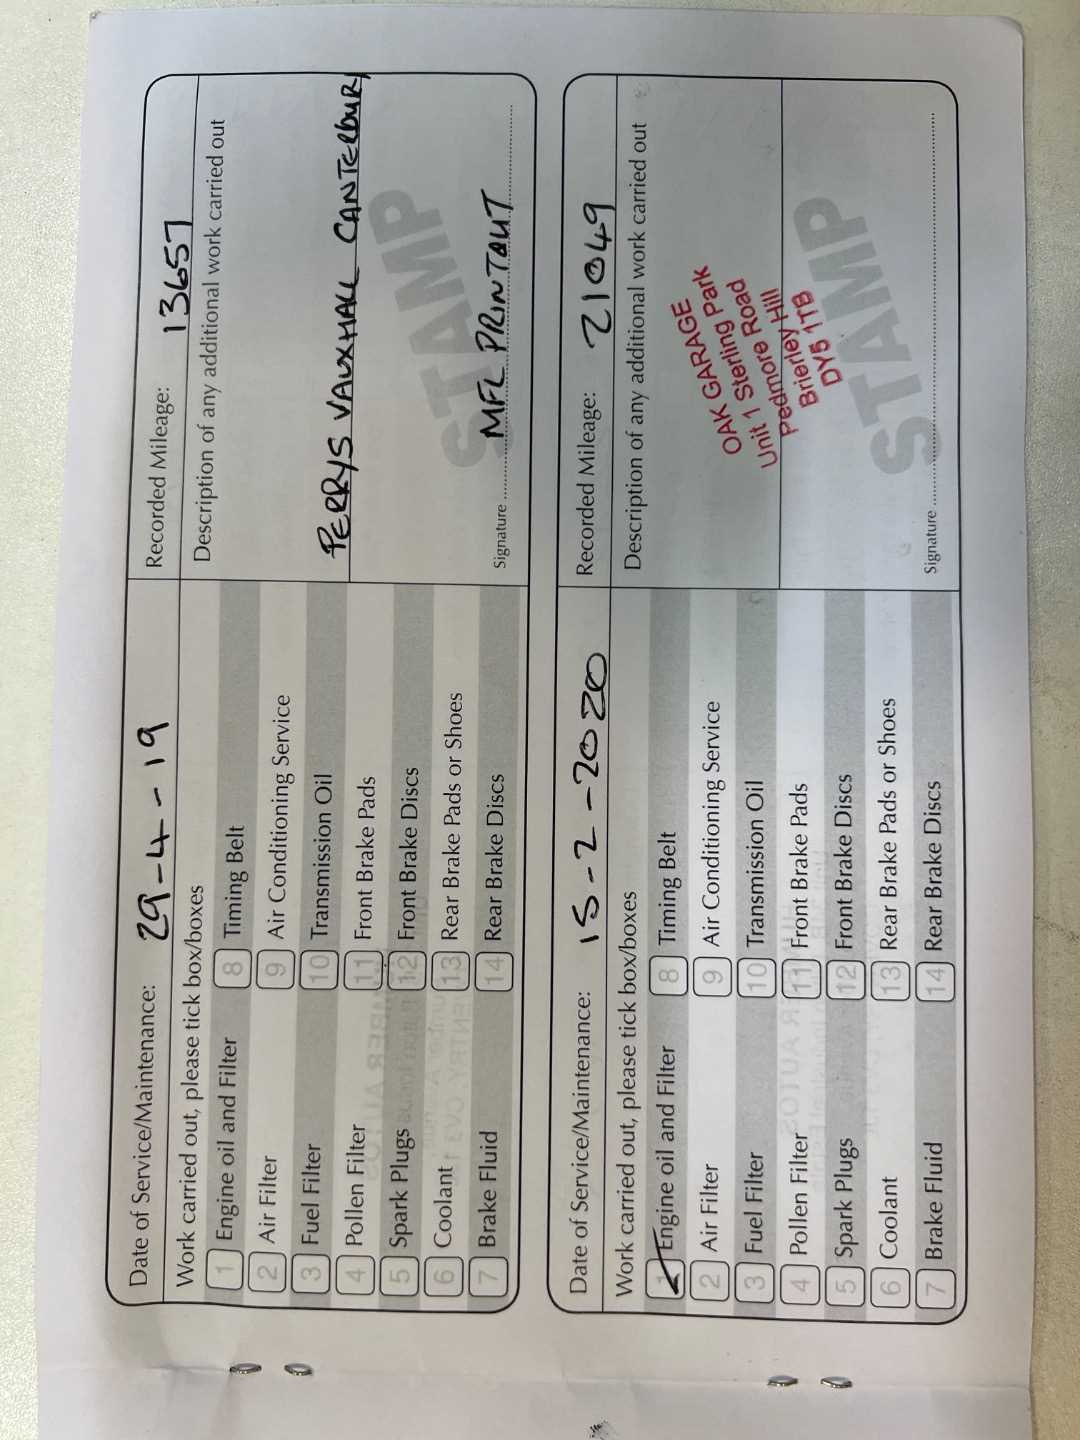 Date of Service/Maintenance: 29-4-19
Recorded Mileage: 13657
Work carried out, please tick box/boxes
Description of any additional work carried out
1 Engine oil and Filter
8 Timing Belt
2 Air Filter
9 Air Conditioning Service
3 Fuel Filter
10 Transmission Oil
4 Pollen Filter
11 Front Brake Pads
5 Spark Plugs
12 Front Brake Discs
6 Coolant
13 Rear Brake Pads or Shoes
7 Brake Fluid
14 Rear Brake Discs
PERRYS VAUXHALL CANTERBURY
STAMP
MFL PRINTOUT
Signature
Date of Service/Maintenance: 15-2-2020
Recorded Mileage: 21049
Work carried out, please tick box/boxes
Description of any additional work carried out
1 Engine oil and Filter
8 Timing Belt
2 Air Filter
9 Air Conditioning Service
3 Fuel Filter
10 Transmission Oil
4 Pollen Filter
11 Front Brake Pads
5 Spark Plugs
12 Front Brake Discs
6 Coolant
13 Rear Brake Pads or Shoes
7 Brake Fluid
14 Rear Brake Discs
OAK GARAGE
Unit 1 Sterling Park
Pedmore Road
Brierley Hill
DY5 1TB
STAMP
Signature